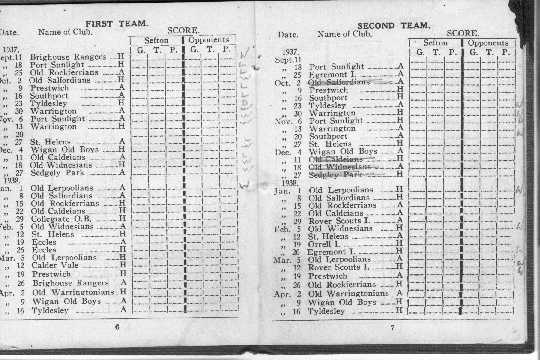 FIRST TEAM.
Date. Name of Club. SCORE.
Sefton Opponents
G. T. P. G. T. P.
1937.
Sept. 11 Brighouse Rangers H
„ 18 Port Sunlight H
„ 25 Old Rockferrians A
Oct. 2 Old Salfordians H
„ 9 Prestwich A
„ 16 Southport A
„ 23 Tyldesley H
„ 30 Warrington A
Nov. 6 Port Sunlight A
„ 13 Warrington H
„ 20
„ 27 St. Helens A
Dec. 4 Wigan Old Boys H
„ 11 Old Caldeians A
„ 18 Old Widnesians H
„ 27 Sedgely Park A
1938.
Jan. 1 Old Lerpoolians A
„ 8 Old Salfordians A
„ 15 Old Rockferrians H
„ 22 Old Caldeians H
„ 29 Collegiate O.B.
Feb. 5 Old Widnesians A
„ 12 St. Helens H
„ 19 Eccles A
„ 26 Eccles H
Mar. 5 Old Lerpoolians H
„ 12 Calder Vale H
„ 19 Prestwich H
„ 26 Brighouse Rangers A
Apr. 2 Old Warringtonians H
„ 9 Wigan Old Boys A
„ 16 Tyldesley A
6
SECOND TEAM.
Date. Name of Club. SCORE.
Sefton Opponents
G. T. P. G. T. P.
1937.
Sept. 11
„ 18 Port Sunlight A
„ 25 Egremont I. A
Oct. 2 Old Salfordians
„ 9 Prestwich H
„ 16 Southport H
„ 23 Tyldesley A
„ 30 Warrington H
Nov. 6 Port Sunlight H
„ 13 Warrington A
„ 20 Southport A
„ 27 St. Helens H
Dec. 4 Wigan Old Boys A
„ 11 Old Caldeians
„ 18 Old Widnesians
„ 27 Sedgley Park H
1938.
Jan. 1 Old Lerpoolians H
„ 8 Old Salfordians H
„ 15 Old Rockferrians A
„ 22 Old Caldeians A
„ 29 Rover Scouts I. A
Feb. 5 Old Widnesians H
„ 12 St. Helens A
„ 19 Orrell I. H
„ 26 Egremont I. H
Mar. 5 Old Lerpoolians A
„ 12 Rover Scouts I. H
„ 19 Prestwich A
„ 26 Old Rockferrians H
Apr. 2 Old Warringtonians A
„ 9 Wigan Old Boys H
„ 16 Tyldesley H
7